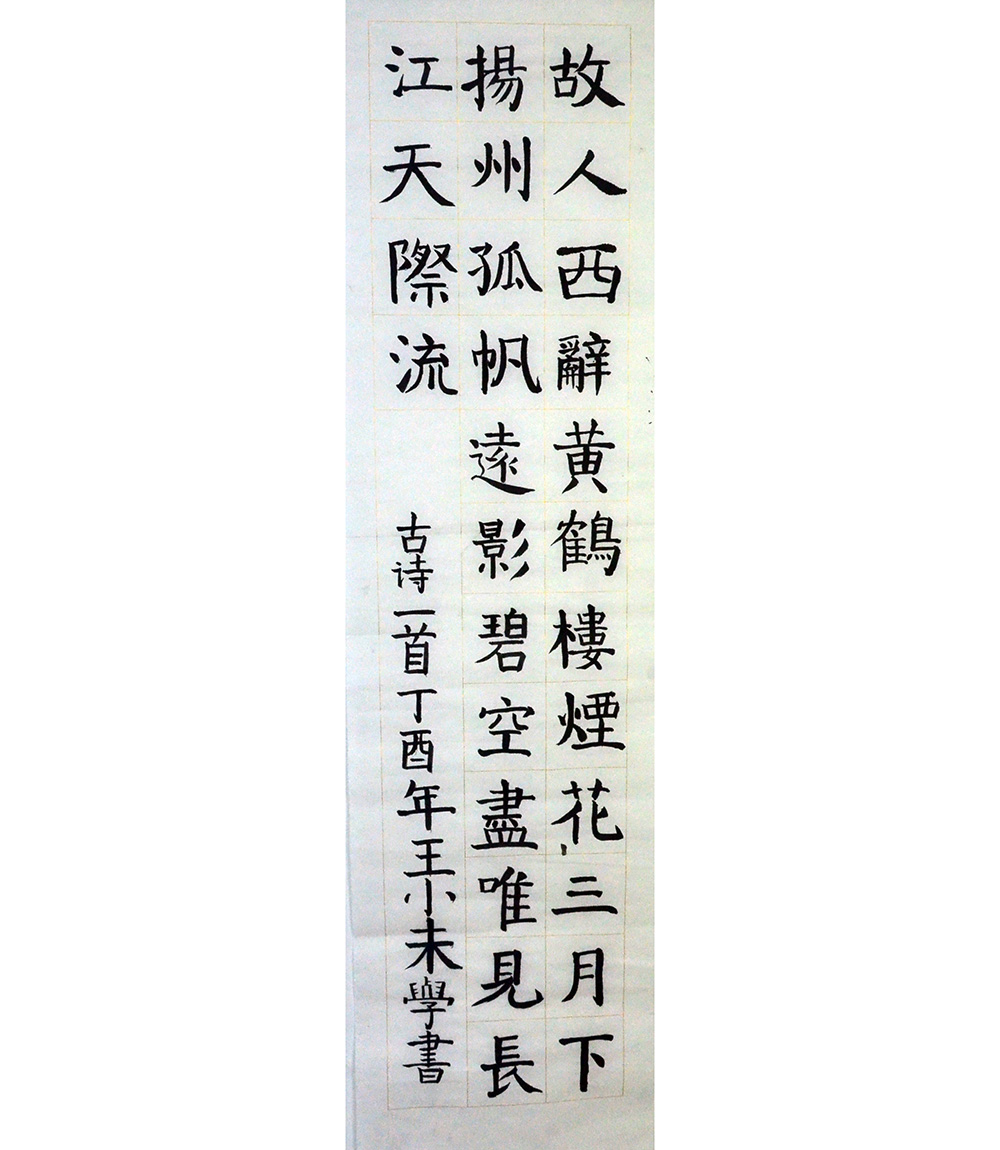 故人西辭黄鶴樓煙花三月下
揚州孤帆遠影碧空盡唯見長
江天際流
古诗一首丁酉年王小未學書